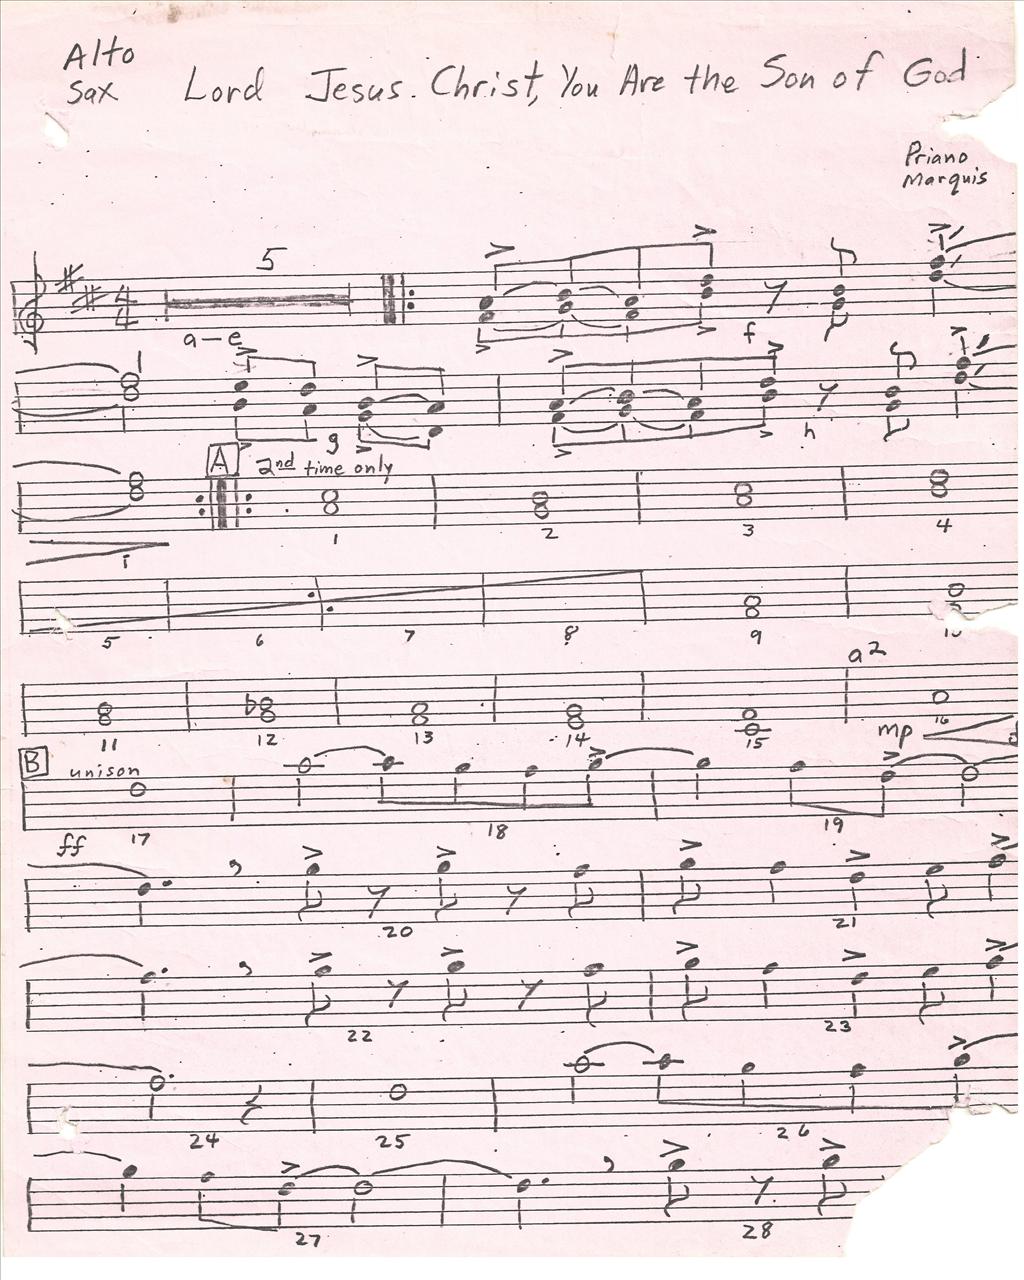 Alto
Sax
Lord Jesus Christ, You Are the Son of God
Priano
Marquis
5
4
4
a-e
f
g
h
A
2nd time only
i
1
2
3
4
5
6
7
8
9
a2
11
12
13
14
15
16
mp
B
unison
ff
17
18
19
20
21
22
23
24
25
26
27
28